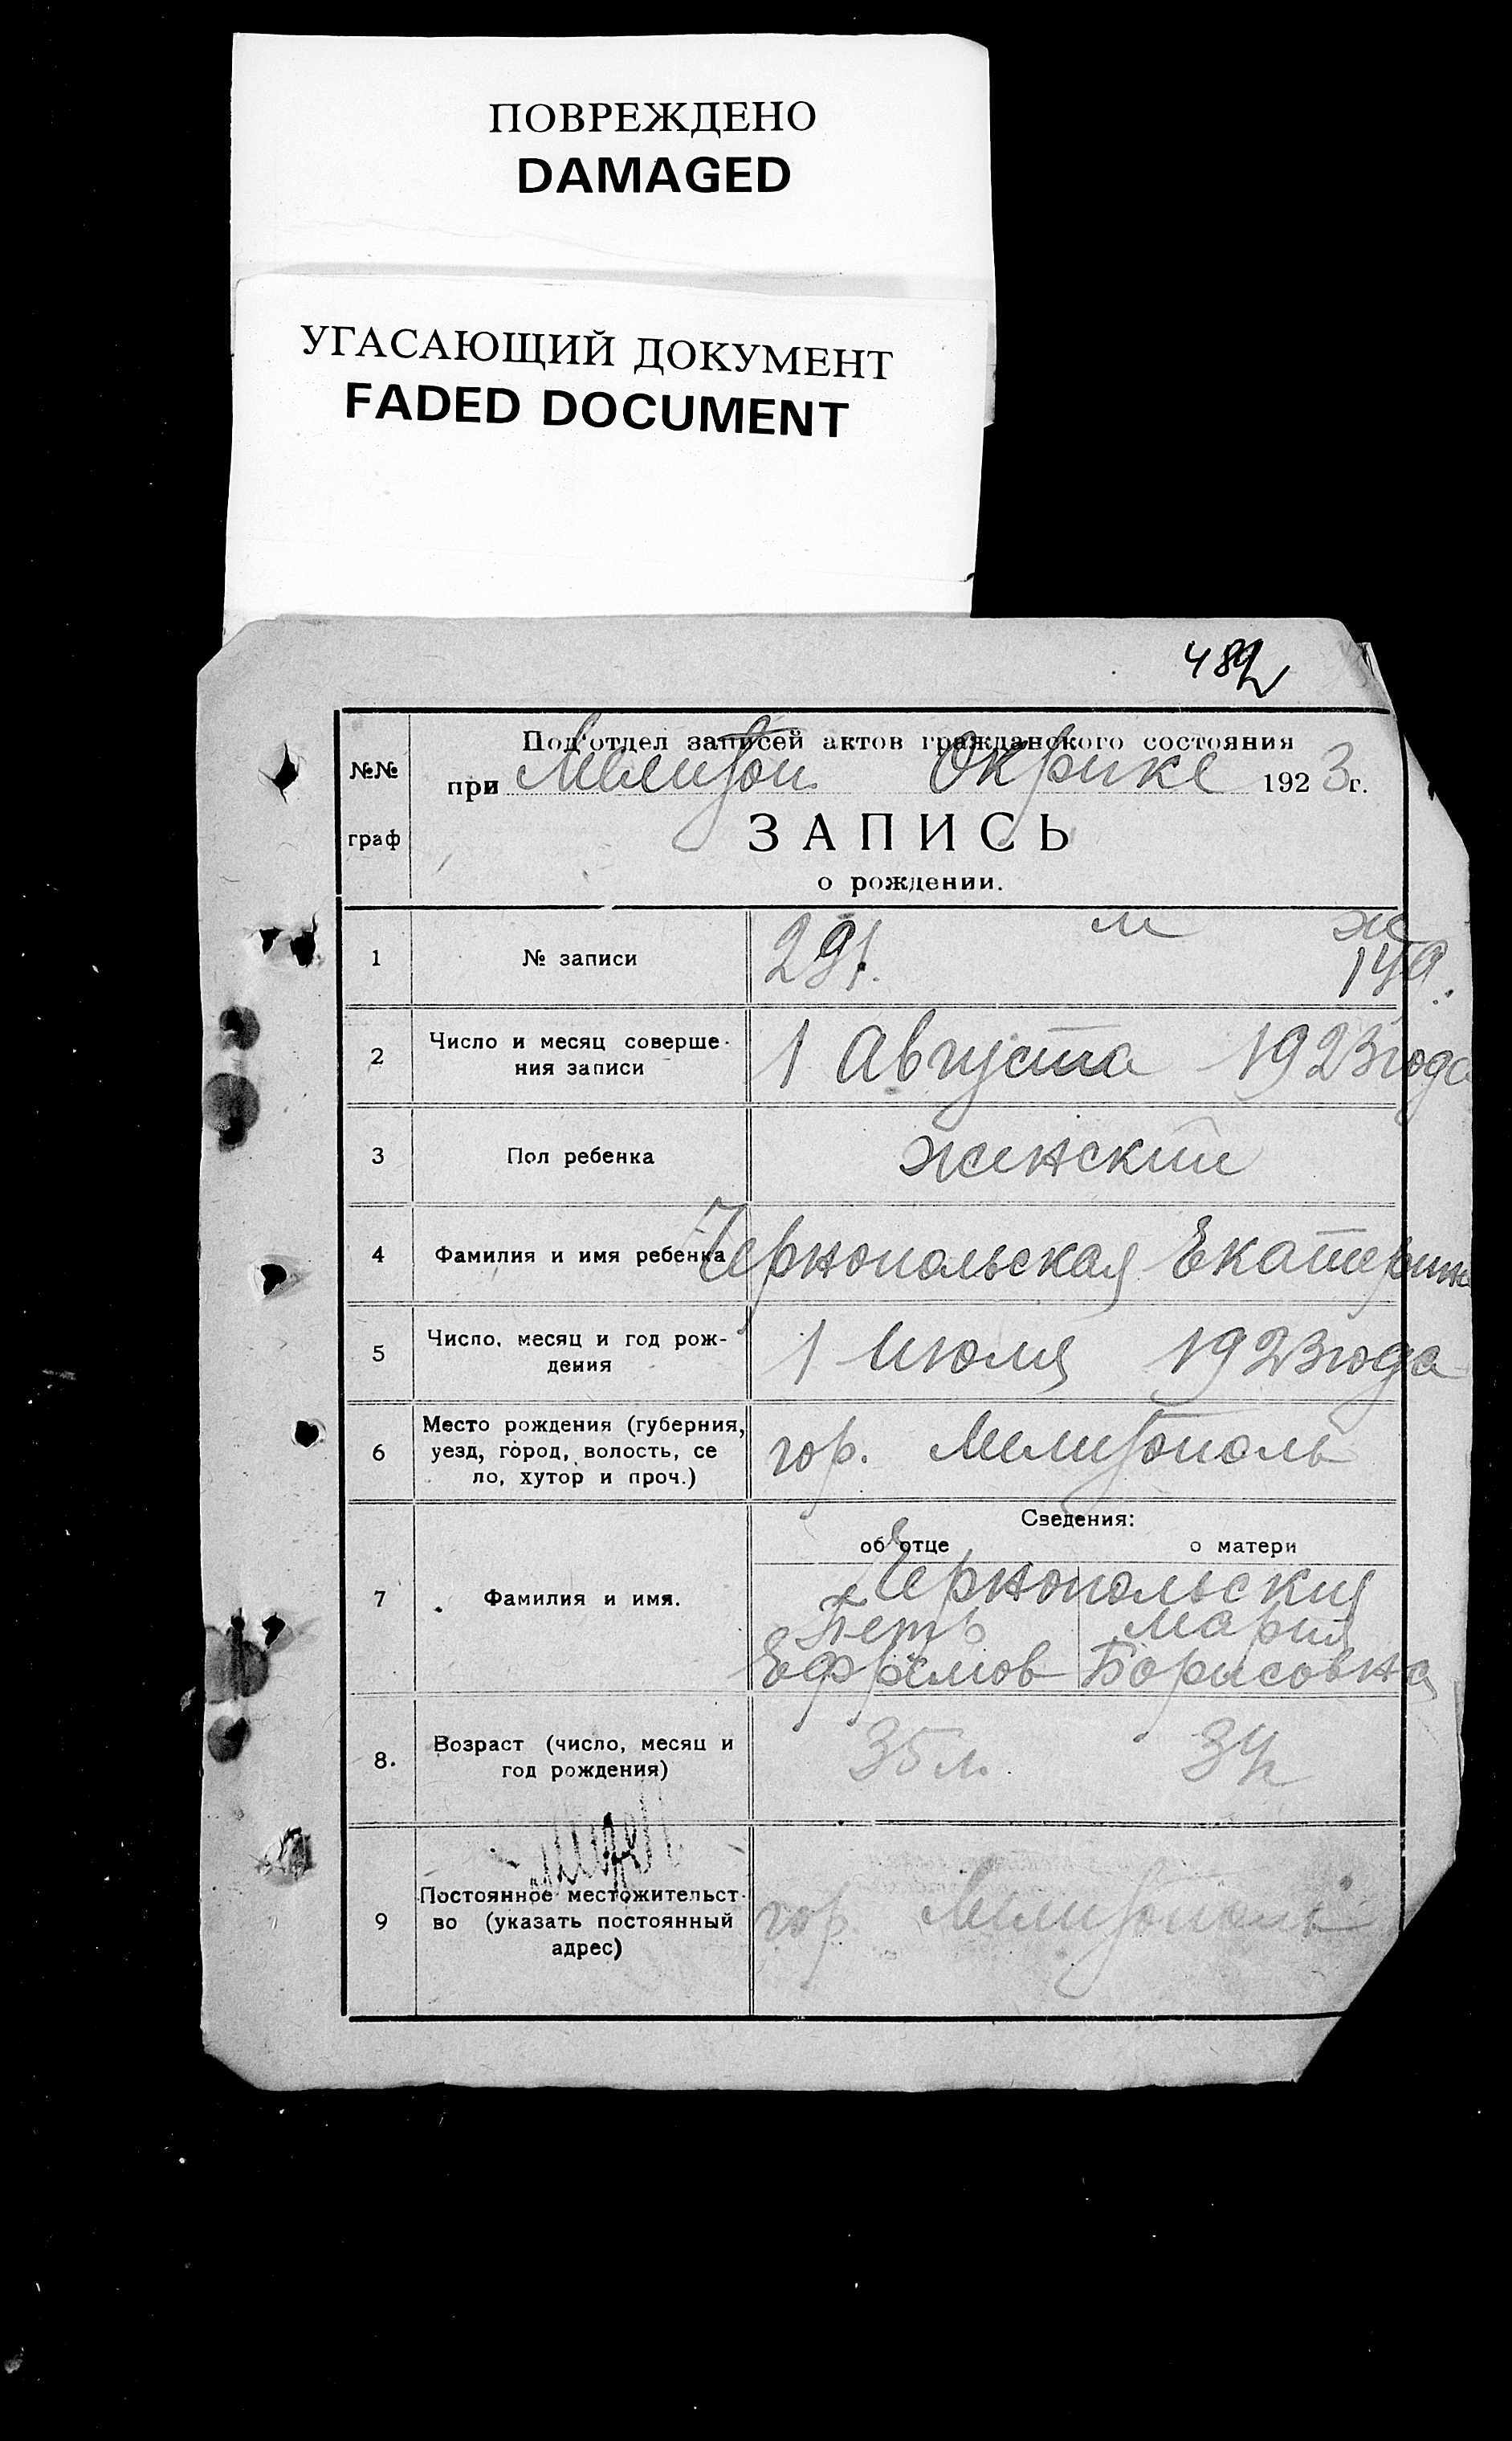 ПОВРЕЖДЕНО
DAMAGED
УГАСАЮЩИЙ ДОКУМЕНТ
FADED DOCUMENT
Под'отдел записей актов гражданского состояния
№№ граф
при Мелитоп. Окрике 1923г.
ЗАПИСЬ
о рождении.
м ж
1 № записи 291.
2 Число и месяц соверше- 1 Августа 1923 года
ния записи
3 Пол ребенка женский
4 Фамилия и имя ребенка Чернопольская Екатерина
5 Число, месяц и год рож- 1 Июля 1923 года
дения
Место рождения (губерния,
6 уезд, город, волость, се гор. Мелитополь
ло, хутор и проч.)
Сведения:
об отце о матери
7 Фамилия и имя. Чернопольския
Петр Мария
Ефремов Борисовна
8. Возраст (число, месяц и 35 л.
год рождения)
Постоянное местожительст-
9 во (указать постоянный гор. Мелитополь
адрес)